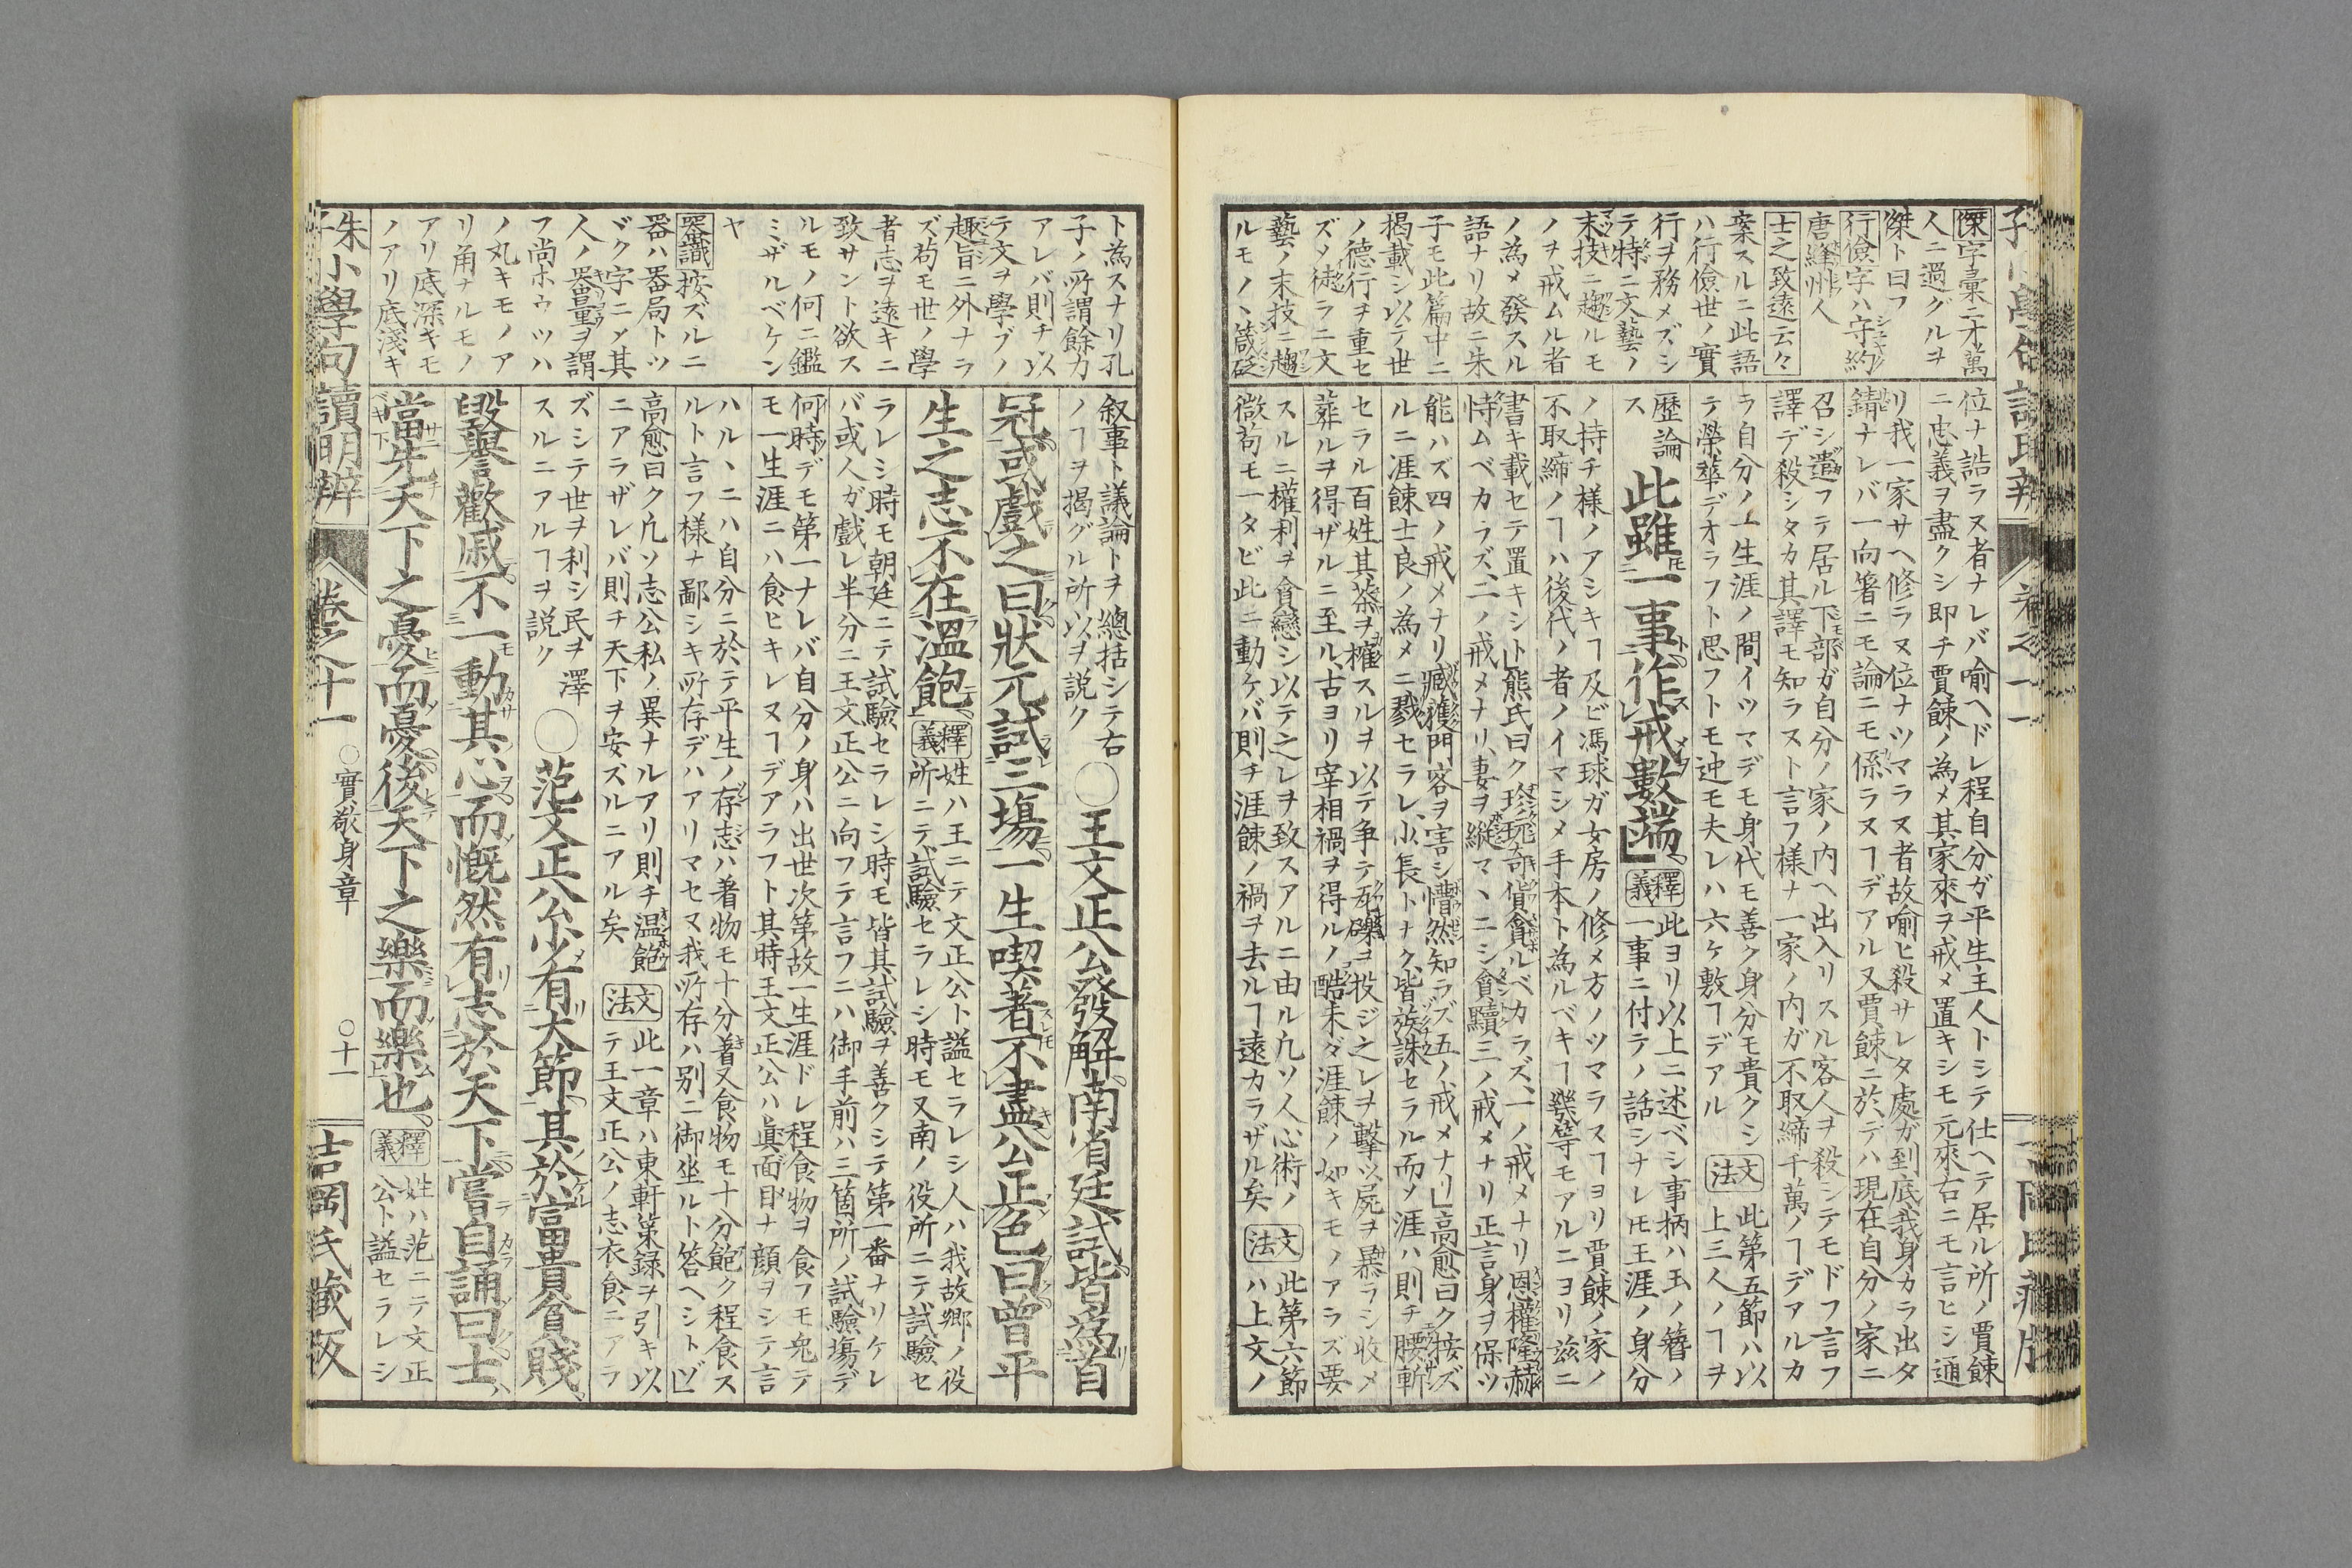 傑字彙ニ才萬
人ニ過グルヲ
傑ト曰フ
行儉字ハ守約
唐絳州人
士之致遠云々
案スルニ此語
ハ行儉世ノ實
行ヲ務メズシ
テ特ニ文藝ノ
末技ニ趨ルモ
ノヲ戒ムル者
ノ為メ發スル
語ナリ故ニ朱
子モ此篇中ニ
揭載シ以テ世
ノ德行ヲ重セ
ズメ徒ラニ文
藝ノ末技ニ趨
ルモノヽ箴砭
位ナ詰ラヌ者ナレバ喻ヘドレ程自分ガ平生主人トシテ仕ヘテ居ル所ノ賈餗
ニ忠義ヲ盡クシ即チ賈餗ノ為メ其家來ヲ戒メ置キシモ元來右ニモ言ヒシ通
リ我一家サヘ修ラヌ位ナツマラヌ者故喻ヒ殺サレタ處ガ到底我身カラ出タ
錆ナレバ一向箸ニモ論ニモ係ラヌヿデアル又賈餗ニ於テハ現在自分ノ家ニ
召シ遣フテ居ル下部ガ自分ノ家ノ内ヘ出入リスル客人ヲ殺シテモドフ言フ
譯デ殺シタカ其譯モ知ラスト言フ様ナ一家ノ内ガ不取締千萬ノヿデアルカ
ラ自分ノ一生涯ノ間イツマデモ身代モ善ク身分モ貴クシ 文法 此第五節ハ以
テ榮華デオラフト思フトモ迚モ夫レハ六ケ敷ヿデアル 上三人ノヿヲ
歴論
ス 此雖一事作戒數端 釋義 此ヨリ以上ニ述ベシ事柄ハ玉ノ簪ノ
一事ニ付テノ話シナレ𪜈王涯ノ身分
ノ持チ様ノアシキヿ及ビ馮球ガ女房ノ修メ方ノツマラスヿヨリ賈餗ノ家ノ
不取締ノヿハ後代ノ者ノイマシメ手本ト為ルベキヿ幾等モアルニヨリ茲ニ
書キ載セテ置キシト熊氏曰ク珍玩奇貨貪ルベカラズ一ノ戒メナリ恩權隆赫
恃ムベカラズ二ノ戒メナリ妻ヲ縱マヽニシ貪黷三ノ戒メナリ正言身ヲ保ツ
能ハズ四ノ戒メナリ臧獲門客ヲ害シ懵然知ラズ五ノ戒メナリ高愈曰ク按ズ
ルニ涯餗士良ノ為メニ戮セラレ少長トナク皆族誅セラル而ノ涯ハ則チ腰斬
セラル百姓其茶ヲ榷スルヲ以テ争テ瓦礫ヲ投ジ之レヲ擊ツ屍ヲ暴ラシ收メ
葬ルヲ得ザルニ至ル古ヨリ宰相禍ヲ得ルノ酷未ダ涯餗ノ如キモノアラズ要
スルニ權利ヲ貪戀シ以テ之レヲ致スアルニ由ル凢ソ人心術ノ 文法 此第六節
微苟モ一タビ此ニ動ケバ則チ涯餗ノ禍ヲ去ルヿ遠カラザル矣 ハ上文ノ
ト為スナリ孔
子ノ所謂餘力
アレバ則チ以
テ文ヲ學ブノ
趣旨ニ外ナラ
ズ苟モ世ノ學
者志ヲ遠キニ
致サント欲ス
ルモノ何ニ鑑
ミザルベケン
ヤ
器識按ズルニ
器ハ器局トツ
ヾク字ニメ其
人ノ器量ヲ謂
フ尚ホウツハ
ノ丸キモノア
リ角ナルモノ
アリ底深キモ
ノアリ底淺キ
叙事ト議論トヲ總括シテ右
ノヿヲ揭グル所以ヲ説ク ○王文正公發解南省廷試皆爲首
冠或戲之曰狀元試三場一生喫著不盡公正色曰曾平
生之志不在溫飽 釋義 姓ハ王ニテ文正公ト謚セラレシ人ハ我故鄉ノ役
所ニテ試驗セラレシ時モ又南ノ役所ニテ試驗セ
ラレシ時モ朝廷ニテ試驗セラレシ時モ皆其試驗ヲ善クシテ第一番ナリケレ
バ或人ガ戲レ半分ニ王文正公ニ向フテ言フニハ御手前ハ三箇所ノ試驗場デ
何時デモ第一ナレバ自分ノ身ハ出世次第故一生涯ドレ程食物ヲ食フモ兎テ
モ一生涯ニハ食ヒキレヌヿデアラフト其時王文正公ハ眞面目ナ顔ヲシテ言
ハルヽニハ自分ニ於テ平生ノ存志ハ着物モ十分着又食物モ十分飽ク程食ス
ルト言フ様ナ鄙シキ所存デハアリマセヌ我所存ハ別ニ御坐ルト答ヘシトゾ
高愈曰ク凢ソ志公私ノ異ナルアリ則チ溫飽 文法 此一章ハ東軒策録ヲ引キ以
ニアラザレバ則チ天下ヲ安ズルニアル矣 テ王文正公ノ志衣食ニアラ
ズシテ世ヲ利シ民ヲ澤
スルニアルヿヲ説ク ○范文正公少有大節其於富貴貧賤
毀譽歡戚不一動其心而慨然有志於天下嘗自誦曰士
當先天下之憂而憂後天下之樂而樂也 釋義 姓ハ范ニテ文正
公ト謚セラレシ
朱子小學句讀明辨 卷之十一 ○實敬身章 ○十一 吉岡氏藏版